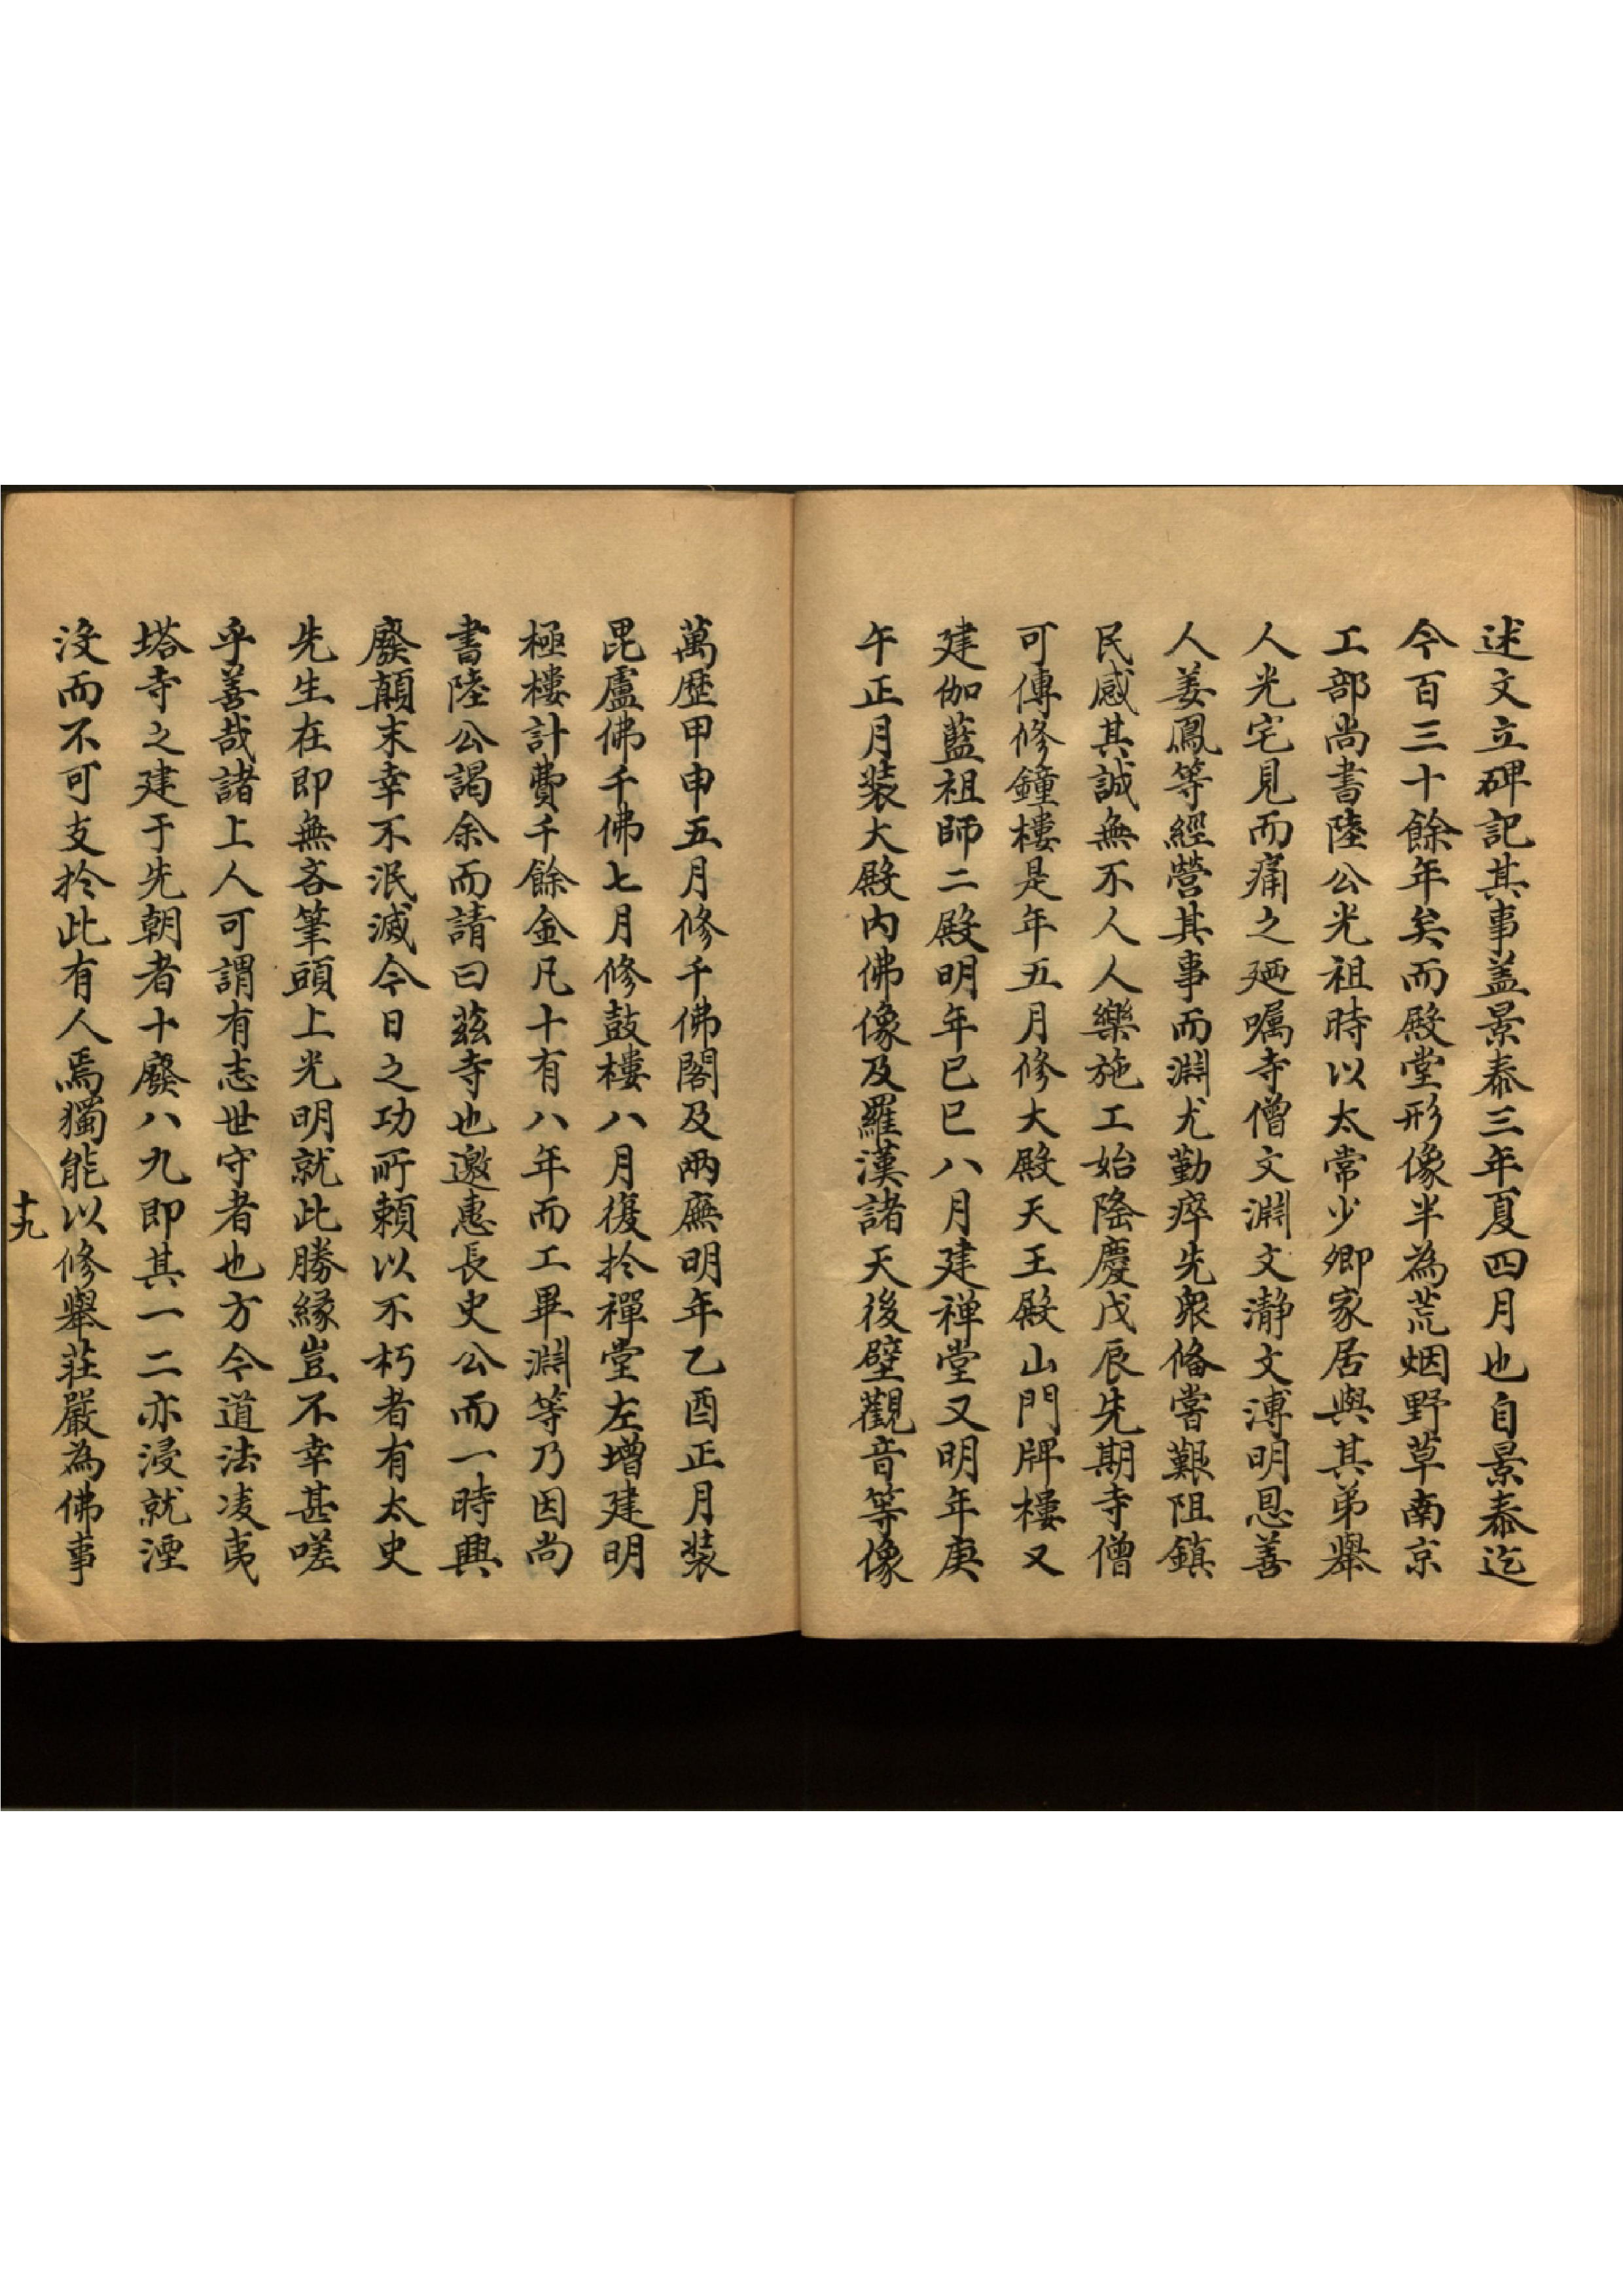 述文立碑記其事盖景泰三年夏四月也自景泰迄
今百三十餘年矣而殿堂形像半為荒烟野草南京
工部尚書陸公光祖時以太常少卿家居與其弟舉
人光宅見而痛之廼嘱寺僧文淵文瀞文溥明恩善
人姜鳳等經營其事而淵尤勤瘁先衆俻嘗艱阻鎮
民感其誠無不人人樂施工始隆慶戊辰先期寺僧
可傳修鐘樓是年五月修大殿天王殿山門牌樓又
建伽藍祖師二殿明年巳巳八月建禅堂又明年庚
午正月装大殿内佛像及羅漢諸天後壁觀音等像
萬歷甲申五月修千佛閣及兩廡明年乙酉正月装
毘盧佛千佛七月修鼓樓八月復扵禪堂左增建明
極樓計費千餘金凡十有八年而工畢淵等乃因尚
書陸公謁余而請曰茲寺也邀惠長史公而一時興
廢顛末幸不泯滅今日之功所頼以不朽者有太史
先生在即無吝筆頭上光明就此勝緣豈不幸甚嗟
乎善哉諸上人可謂有志世守者也方今道法凌夷
塔寺之建于先朝者十廢八九即其一二亦浸就湮
沒而不可支扵此有人焉獨能以修舉莊嚴為佛事
十九